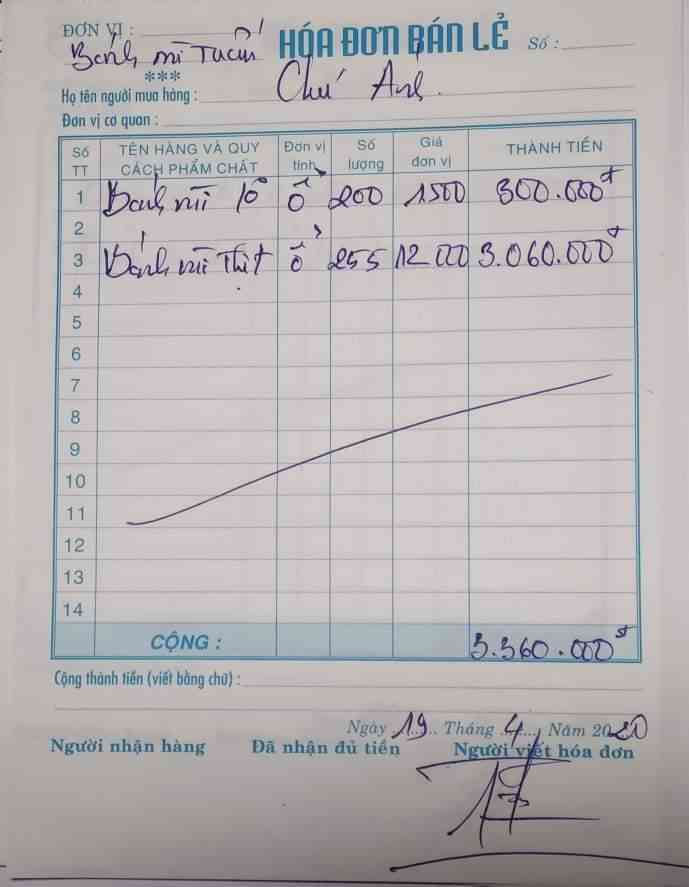 ĐƠN VỊ : Bánh mì Tuấn HÓA ĐƠN BÁN LẺ Số :
***
Họ tên người mua hàng : Chú Ánh
Đơn vị cơ quan :
Số TT TÊN HÀNG VÀ QUY CÁCH PHẨM CHẤT Đơn vị tính Số lượng Giá đơn vị THÀNH TIỀN
1 Bánh mì ổ 200 1500 300.000đ
2
3 Bánh mì Thịt ổ 255 12000 3.060.000đ
4
5
6
7
8
9
10
11
12
13
14
CỘNG : 3.360.000đ
Cộng thành tiền (viết bằng chữ) :
Ngày 19 Tháng 4 Năm 2020
Người nhận hàng Đã nhận đủ tiền Người viết hóa đơn